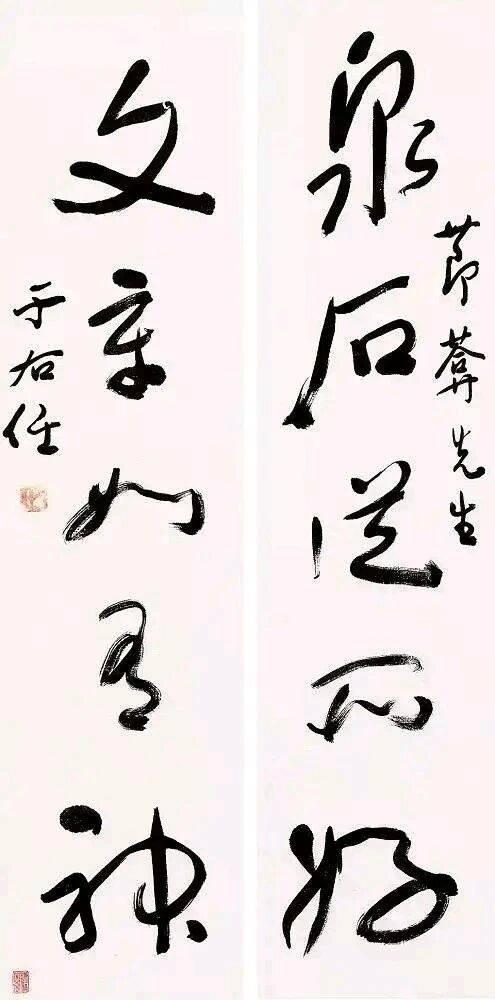 莭葊先生
泉石從所好
文章如有神
于右任